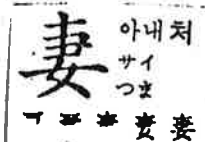 妻
아내 처
サイ
つま